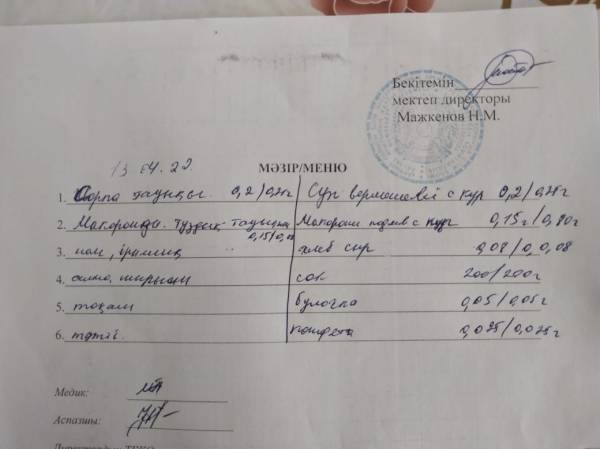 Бекітемін
мектеп директоры
Мажкенов Н.М.
13 04. 22.
МӘЗІР/МЕНЮ
1. Сорпа тауықты. 0,2/0,25г Суп вермешевый с кур 0,2/0,25г
2. Макароны. тұздық тауықты Макароны подлив с кур 0,15г/0,80г
0,15/0,08
3. нан, ірімшік хлеб сыр 0,08/0,0,08
4. алма шырыны сок 200/200г
5. тоқаш булочка 0,05/0,05г
6. тәтті. конфета 0,025/0,025г
Медик:
Аспазшы: